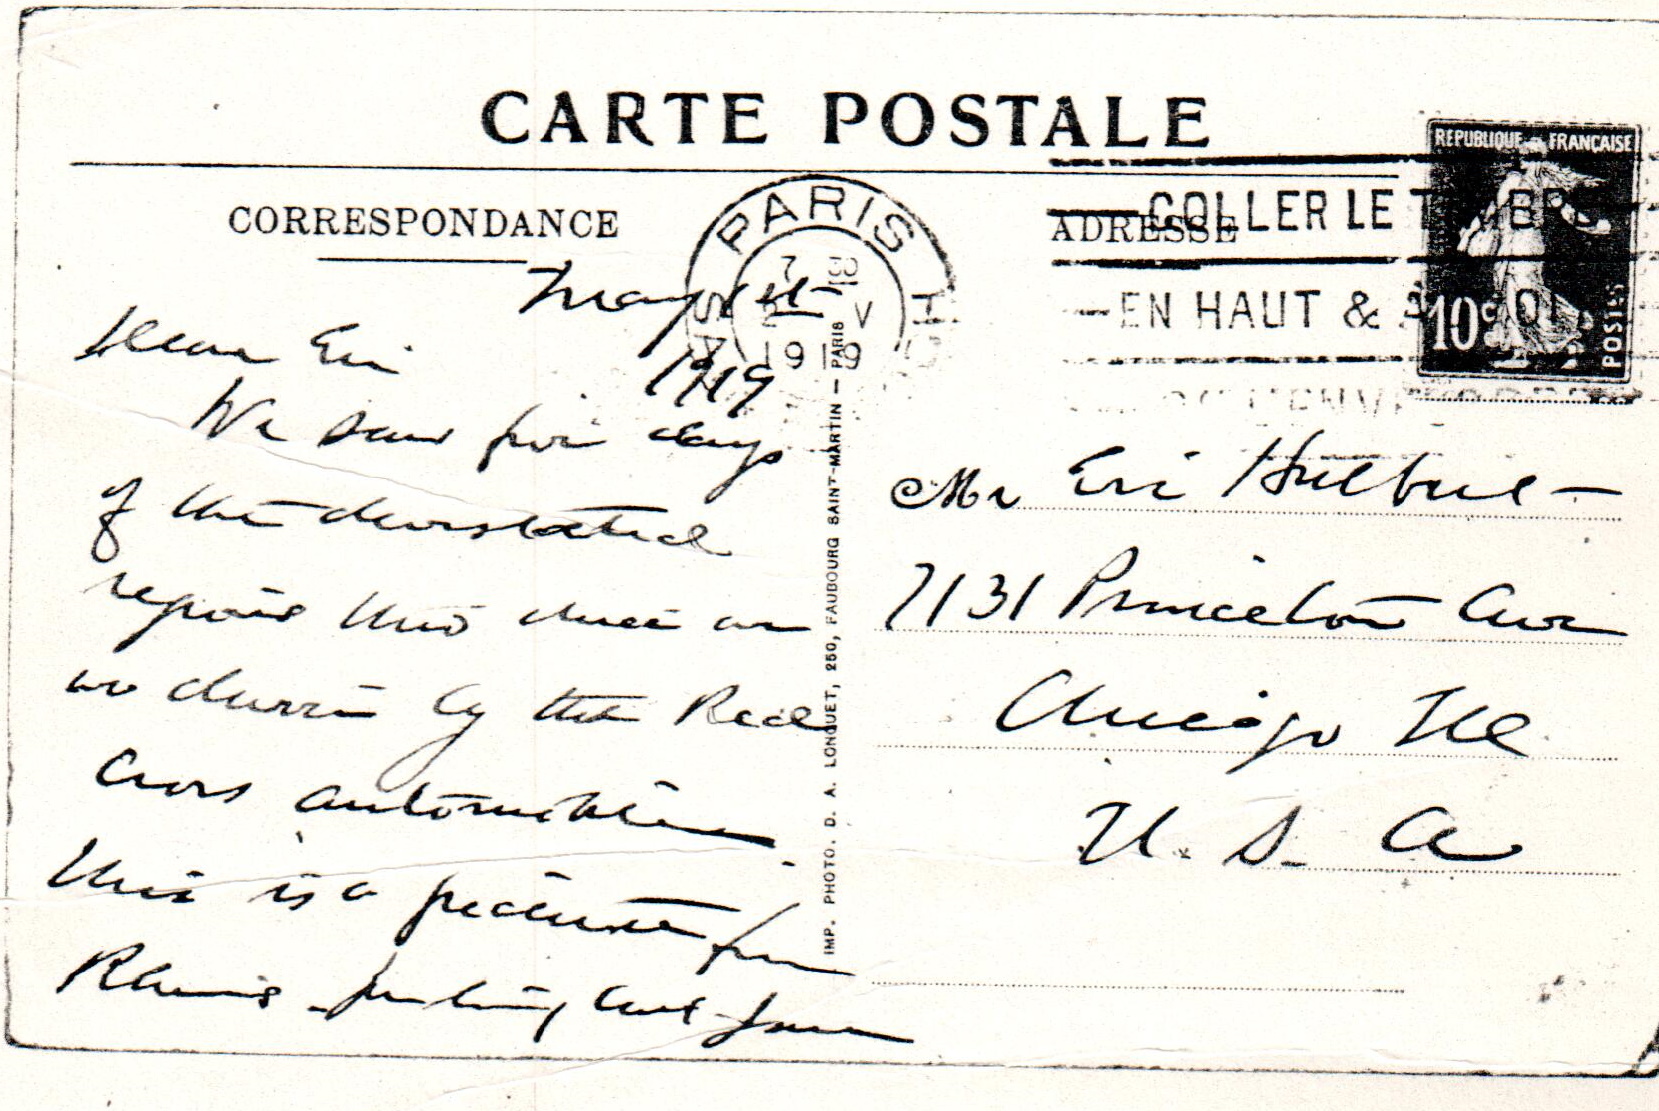 CARTE POSTALE
CORRESPONDANCE
ADRESSE
REPUBLIQUE FRANÇAISE
10c
POSTES
PARIS
7 30
2 V
1919
COLLER LE TIMBRE
EN HAUT & A
May 1st
1919
Dear Eri
We saw five days
of the devastated
regions this time
we driven by the Red
Cross automobiles.
This is a picture from
Rheims
Mr Eri Hulbert
7131 Princeton Ave
Chicago Ill
U. S. A
IMP. PHOTO. D. A. LONGUET, 250, FAUBOURG SAINT-MARTIN — PARIS